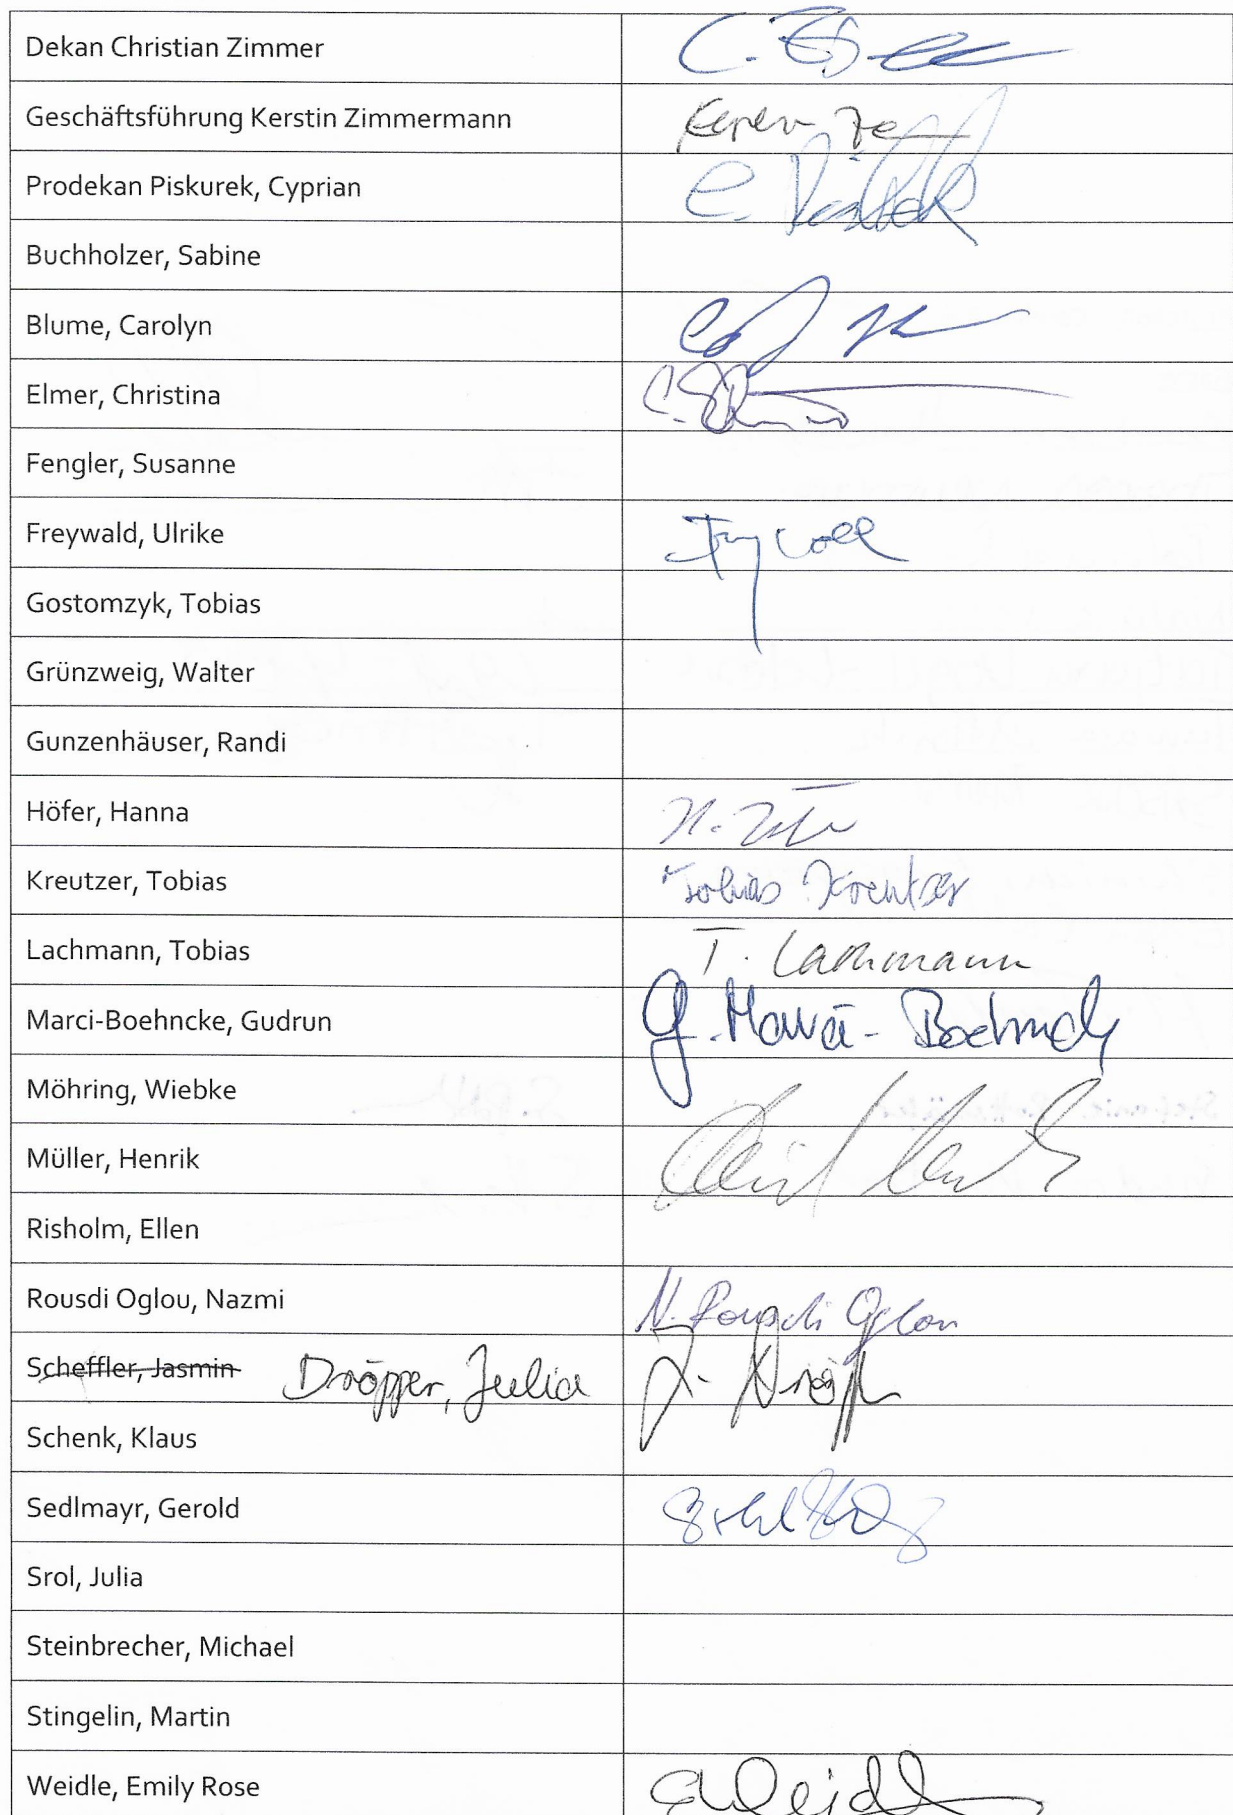 Dekan Christian Zimmer
Geschäftsführung Kerstin Zimmermann
Prodekan Piskurek, Cyprian C.
Buchholzer, Sabine
Blume, Carolyn
Elmer, Christina
Fengler, Susanne
Freywald, Ulrike
Gostomzyk, Tobias
Grünzweig, Walter
Gunzenhäuser, Randi
Höfer, Hanna H.
Kreutzer, Tobias Tobias Kreutzer
Lachmann, Tobias T. Lachmann
Marci-Boehncke, Gudrun G. Marci-Boehncke
Möhring, Wiebke
Müller, Henrik
Risholm, Ellen
Rousdi Oglou, Nazmi N. Rousdi Oglou
Scheffler, Jasmin Dröpper, Julia J. Dröpper
Schenk, Klaus
Sedlmayr, Gerold
Srol, Julia
Steinbrecher, Michael
Stingelin, Martin
Weidle, Emily Rose